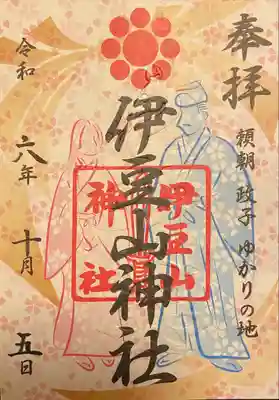 奉拝
頼朝 政子 ゆかりの地
伊豆山神社
令和
六年
十月
五日